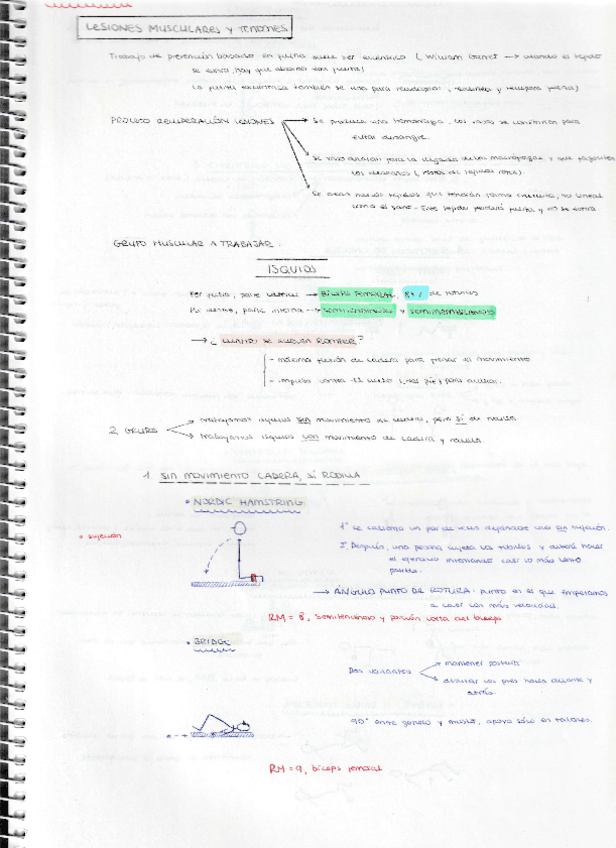 LESIONES MUSCULARES Y TENDONES
Trabajo de prevención basado en fuerza suele ser excéntrico (William Garret → cuando el tejido
se estira, hay que absorber esa fuerza)
La fuerza excéntrica también se usa para readaptar
PROCESO RECUPERACIÓN LESIONES
Se produce una hemorragia, los vasos se constriñen para
evitar derrame.
Se vaso dilatan para la llegada de los macrófagos y que fagociten
los desechos (restos de tejidos rotos)
Se crean nuevos tejidos que tendrán forma cruzada, no lineal
como el sano. Este tejido perderá fuerza y no se estira.
GRUPO MUSCULAR A TRABAJAR.
ISQUIOS
Por fuera, parte lateral → BÍCEPS FEMORAL. 84% de roturas
Por dentro, parte interna → SEMITENDINOSO y SEMIMEMBRANOSO
→ ¿CUÁNDO SE SUELEN ROMPER?
- máxima flexión de cadera para frenar el movimiento
- impulso contra el suelo (tras pie) para acelerar.
2 GRUPOS
trabajamos isquios sin movimiento de cadera, pero sí de rodilla
trabajamos isquios con movimiento de cadera y rodilla.
1. SIN MOVIMIENTO CADERA, SÍ RODILLA
• NORDIC HAMSTRING
• sujeción
1º se calienta un par de veces dejándose caer sin sujeción.
2º Después, una persona sujeta los tobillos y deberá hacer
el ejercicio intentando caer lo más lento
posible.
→ ÁNGULO PUNTO DE ROTURA: punto en el que empezamos
a caer con más velocidad.
RM = 8, semitendinoso y porción corta del bíceps
• BRIDGE
Dos variantes
mantener postura
desplazar los pies hacia delante y
atrás.
90° entre gemelo y muslo, apoyo sólo en talones.
RM = 9, bíceps femoral